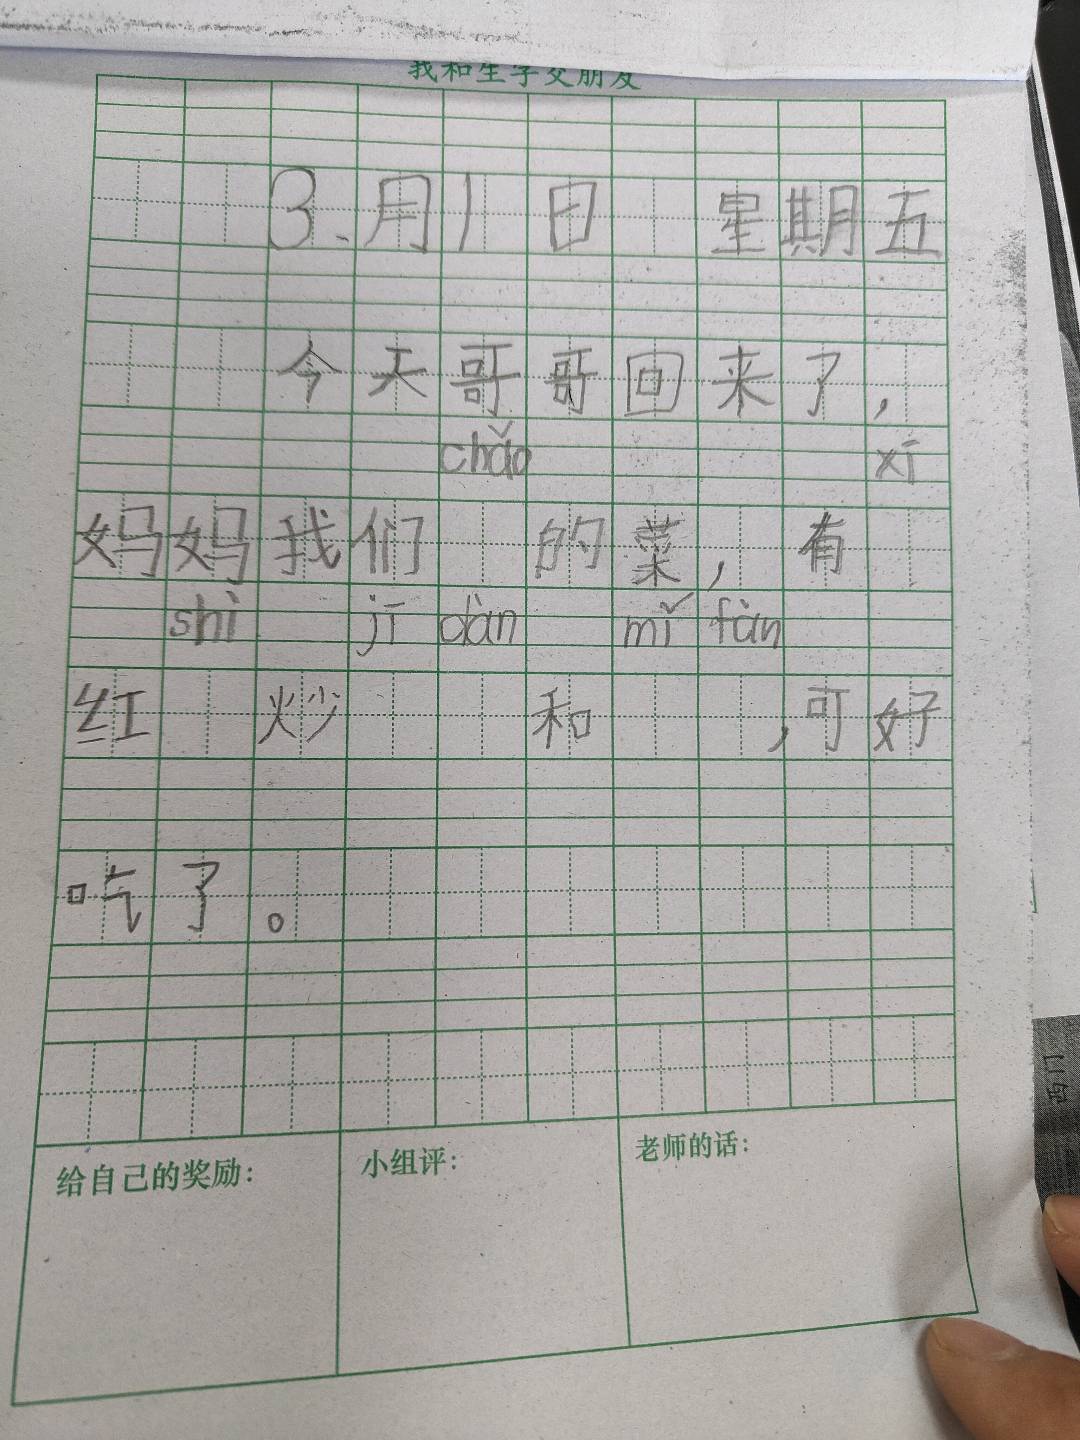 我和生字交朋友
3、月1日 星期五
今天哥哥回来了，
chǎo xī
妈妈我们 的菜，有
shì jī dàn mǐ fàn
红 炒 和 ，可好
吃了。
给自己的奖励：
小组评：
老师的话：
西门